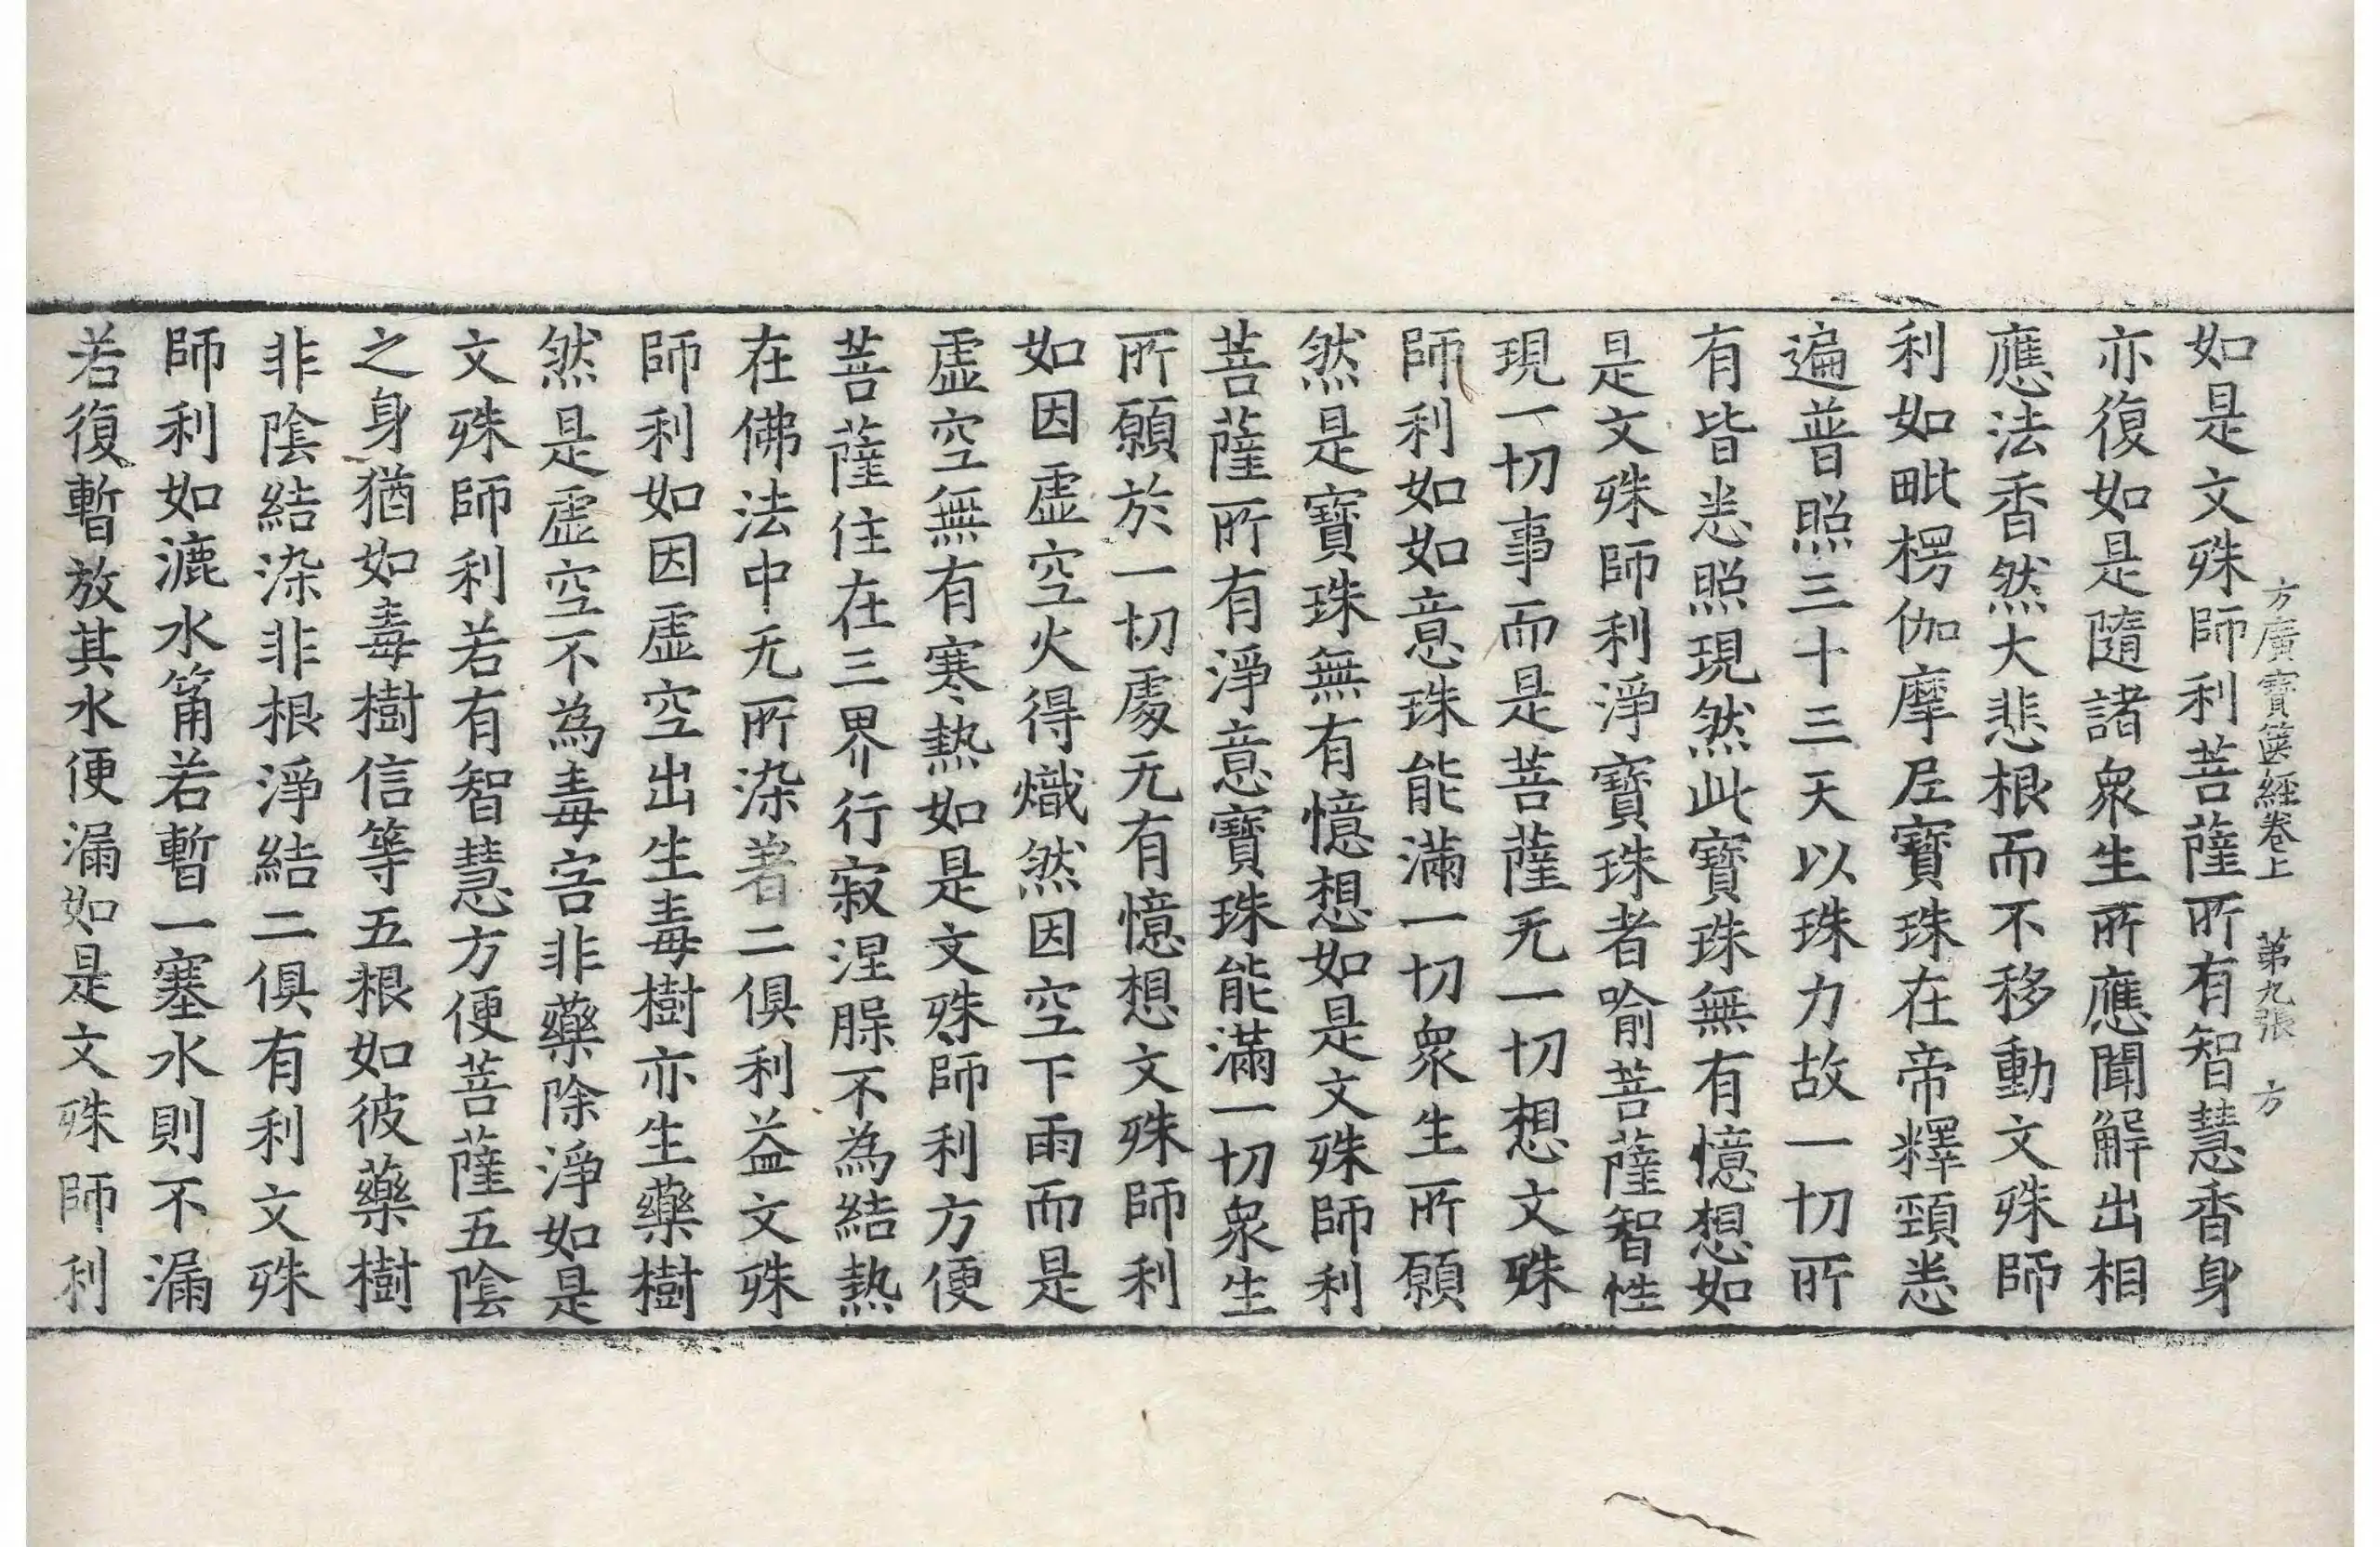 方廣寶篋經卷上 第九張 方
如是文殊師利菩薩所有智慧香身
亦復如是隨諸衆生所應聞解出相
應法香然大悲根而不移動文殊師
利如毗楞伽摩𡰱寶珠在帝釋頸悉
遍普照三十三天以珠力故一切所
有皆悉照現然此寶珠無有憶想如
是文殊師利淨寶珠者喻菩薩智性
現一切事而是菩薩无一切想文殊
師利如如意珠能滿一切衆生所願
然是寶珠無有憶想如是文殊師利
菩薩所有淨意寶珠能滿一切衆生
所願於一切處无有憶想文殊師利
如因虛空火得熾然因空下雨而是
虛空無有寒熱如是文殊師利方便
菩薩住在三界行寂涅槃不為結熱
在佛法中无所染著二俱利益文殊
師利如因虛空出生毒樹亦生藥樹
然是虛空不為毒害非藥除淨如是
文殊師利若有智慧方便菩薩五陰
之身猶如毒樹信等五根如彼藥樹
非陰結染非根淨結二俱有利文殊
師利如漉水筩若暫一塞水則不漏
若復暫放其水便漏如是文殊師利